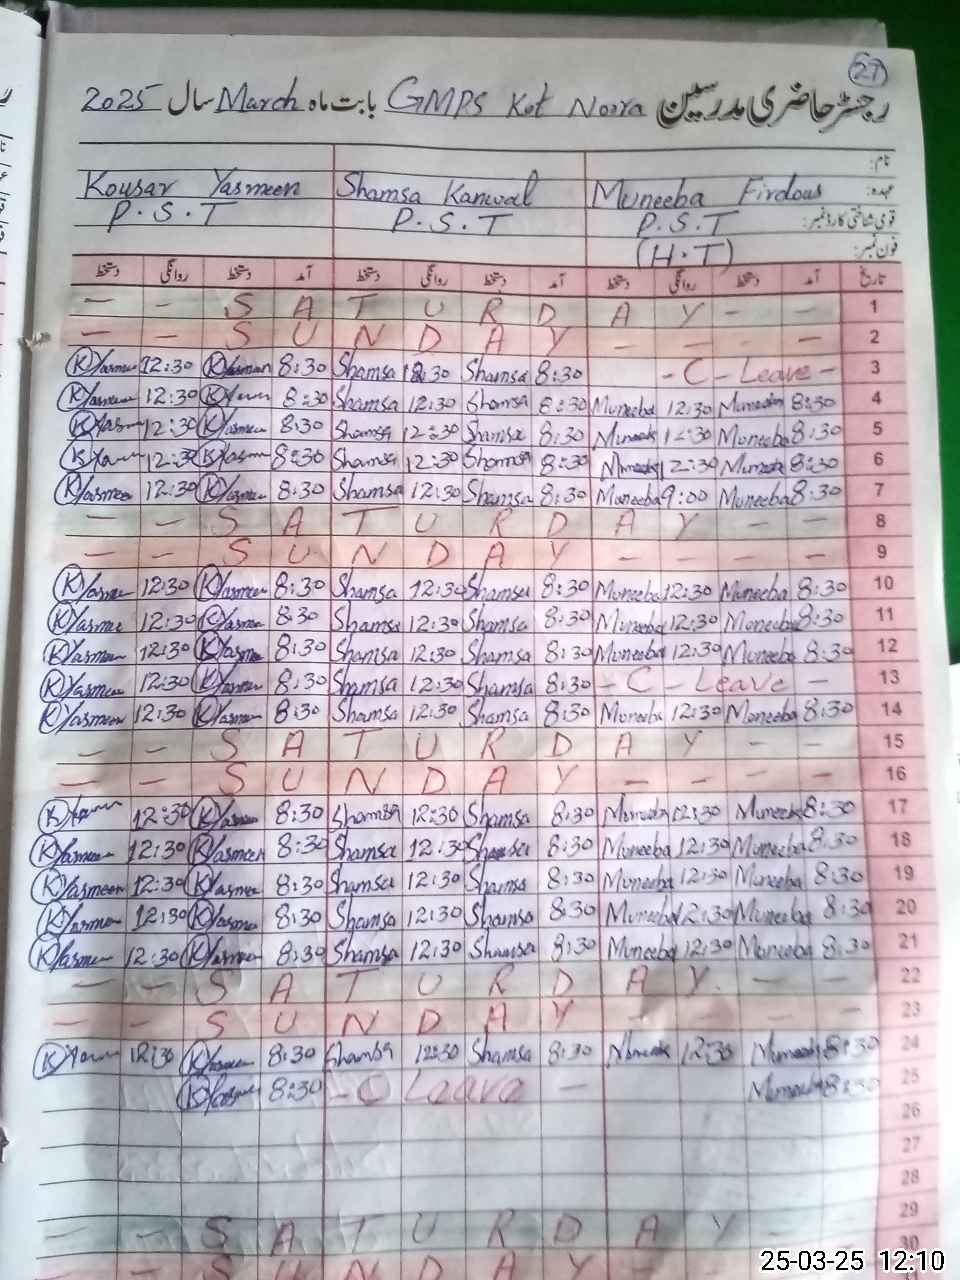 27
رجسٹر حاضری مدرسین GMPS Kot Noora بابت ماہ March سال 2025
نام:
Kousar Yasmeen Shamsa Kanwal Muneeba Firdous عہدہ:
P.S.T P.S.T P.S.T قومی شناختی کارڈ نمبر:
(H.T) فون نمبر:
دستخط روانگی دستخط آمد دستخط روانگی دستخط آمد دستخط روانگی دستخط آمد تاریخ
- - S A T U R D A Y - - 1
- - S U N D A Y - - - - 2
(K)Yasmeen 12:30 (K)Yasmeen 8:30 Shamsa 12:30 Shamsa 8:30 - C - Leave - 3
(K)Yasmeen 12:30 (K) 8:30 Shamsa 12:30 Shamsa 8:30 Muneeba 12:30 Muneeba 8:30 4
(K)Yasm 12:30 (K)Yasmeen 8:30 Shamsa 12:30 Shamsa 8:30 Muneeba 12:30 Muneeba 8:30 5
(K) 12:30 (K)Yasm 8:30 Shamsa 12:30 Shamsa 8:30 Muneeba 12:30 Muneeba 8:30 6
(K)Yasmeen 12:30 (K)Yasmeen 8:30 Shamsa 12:30 Shamsa 8:30 Muneeba 9:00 Muneeba 8:30 7
- - S A T U R D A Y - - 8
- - S U N D A Y - - - - 9
(K)Yasmee 12:30 (K)Yasmeen 8:30 Shamsa 12:30 Shamsa 8:30 Muneeba 12:30 Muneeba 8:30 10
(K)Yasmee 12:30 (K)Yasmee 8:30 Shamsa 12:30 Shamsa 8:30 Muneeba 12:30 Muneeba 8:30 11
(K)Yasmeen 12:30 (K)Yasmee 8:30 Shamsa 12:30 Shamsa 8:30 Muneeba 12:30 Muneeba 8:30 12
(K)Yasmeen 12:30 (K)Yasmeen 8:30 Shamsa 12:30 Shamsa 8:30 - C - Leave - 13
(K)Yasmeen 12:30 (K)Yasmeen 8:30 Shamsa 12:30 Shamsa 8:30 Muneeba 12:30 Muneeba 8:30 14
- - S A T U R D A Y - - 15
- - S U N D A Y - - - - 16
(K) 12:30 (K)Yasmeen 8:30 Shamsa 12:30 Shamsa 8:30 Muneeba 12:30 Muneeba 8:30 17
(K)Yasmeen 12:30 (K)Yasmeen 8:30 Shamsa 12:30 Shamsa 8:30 Muneeba 12:30 Muneeba 8:30 18
(K)Yasmeen 12:30 (K)Yasmeen 8:30 Shamsa 12:30 Shamsa 8:30 Muneeba 12:30 Muneeba 8:30 19
(K)Yasmeen 12:30 (K)Yasmeen 8:30 Shamsa 12:30 Shamsa 8:30 Muneeba 12:30 Muneeba 8:30 20
(K)Yasmeen 12:30 (K)Yasmeen 8:30 Shamsa 12:30 Shamsa 8:30 Muneeba 12:30 Muneeba 8:30 21
- - S A T U R D A Y - - 22
- - S U N D A Y - - - - 23
(K) 12:30 (K)Yasmeen 8:30 Shamsa 12:30 Shamsa 8:30 Muneeba 12:30 Muneeba 8:30 24
(K)Yasmeen 8:30 - C Leave - Muneeba 8:30 25
26
27
28
S A T U R D A Y 29
S U N D A Y 30
25-03-25 12:10